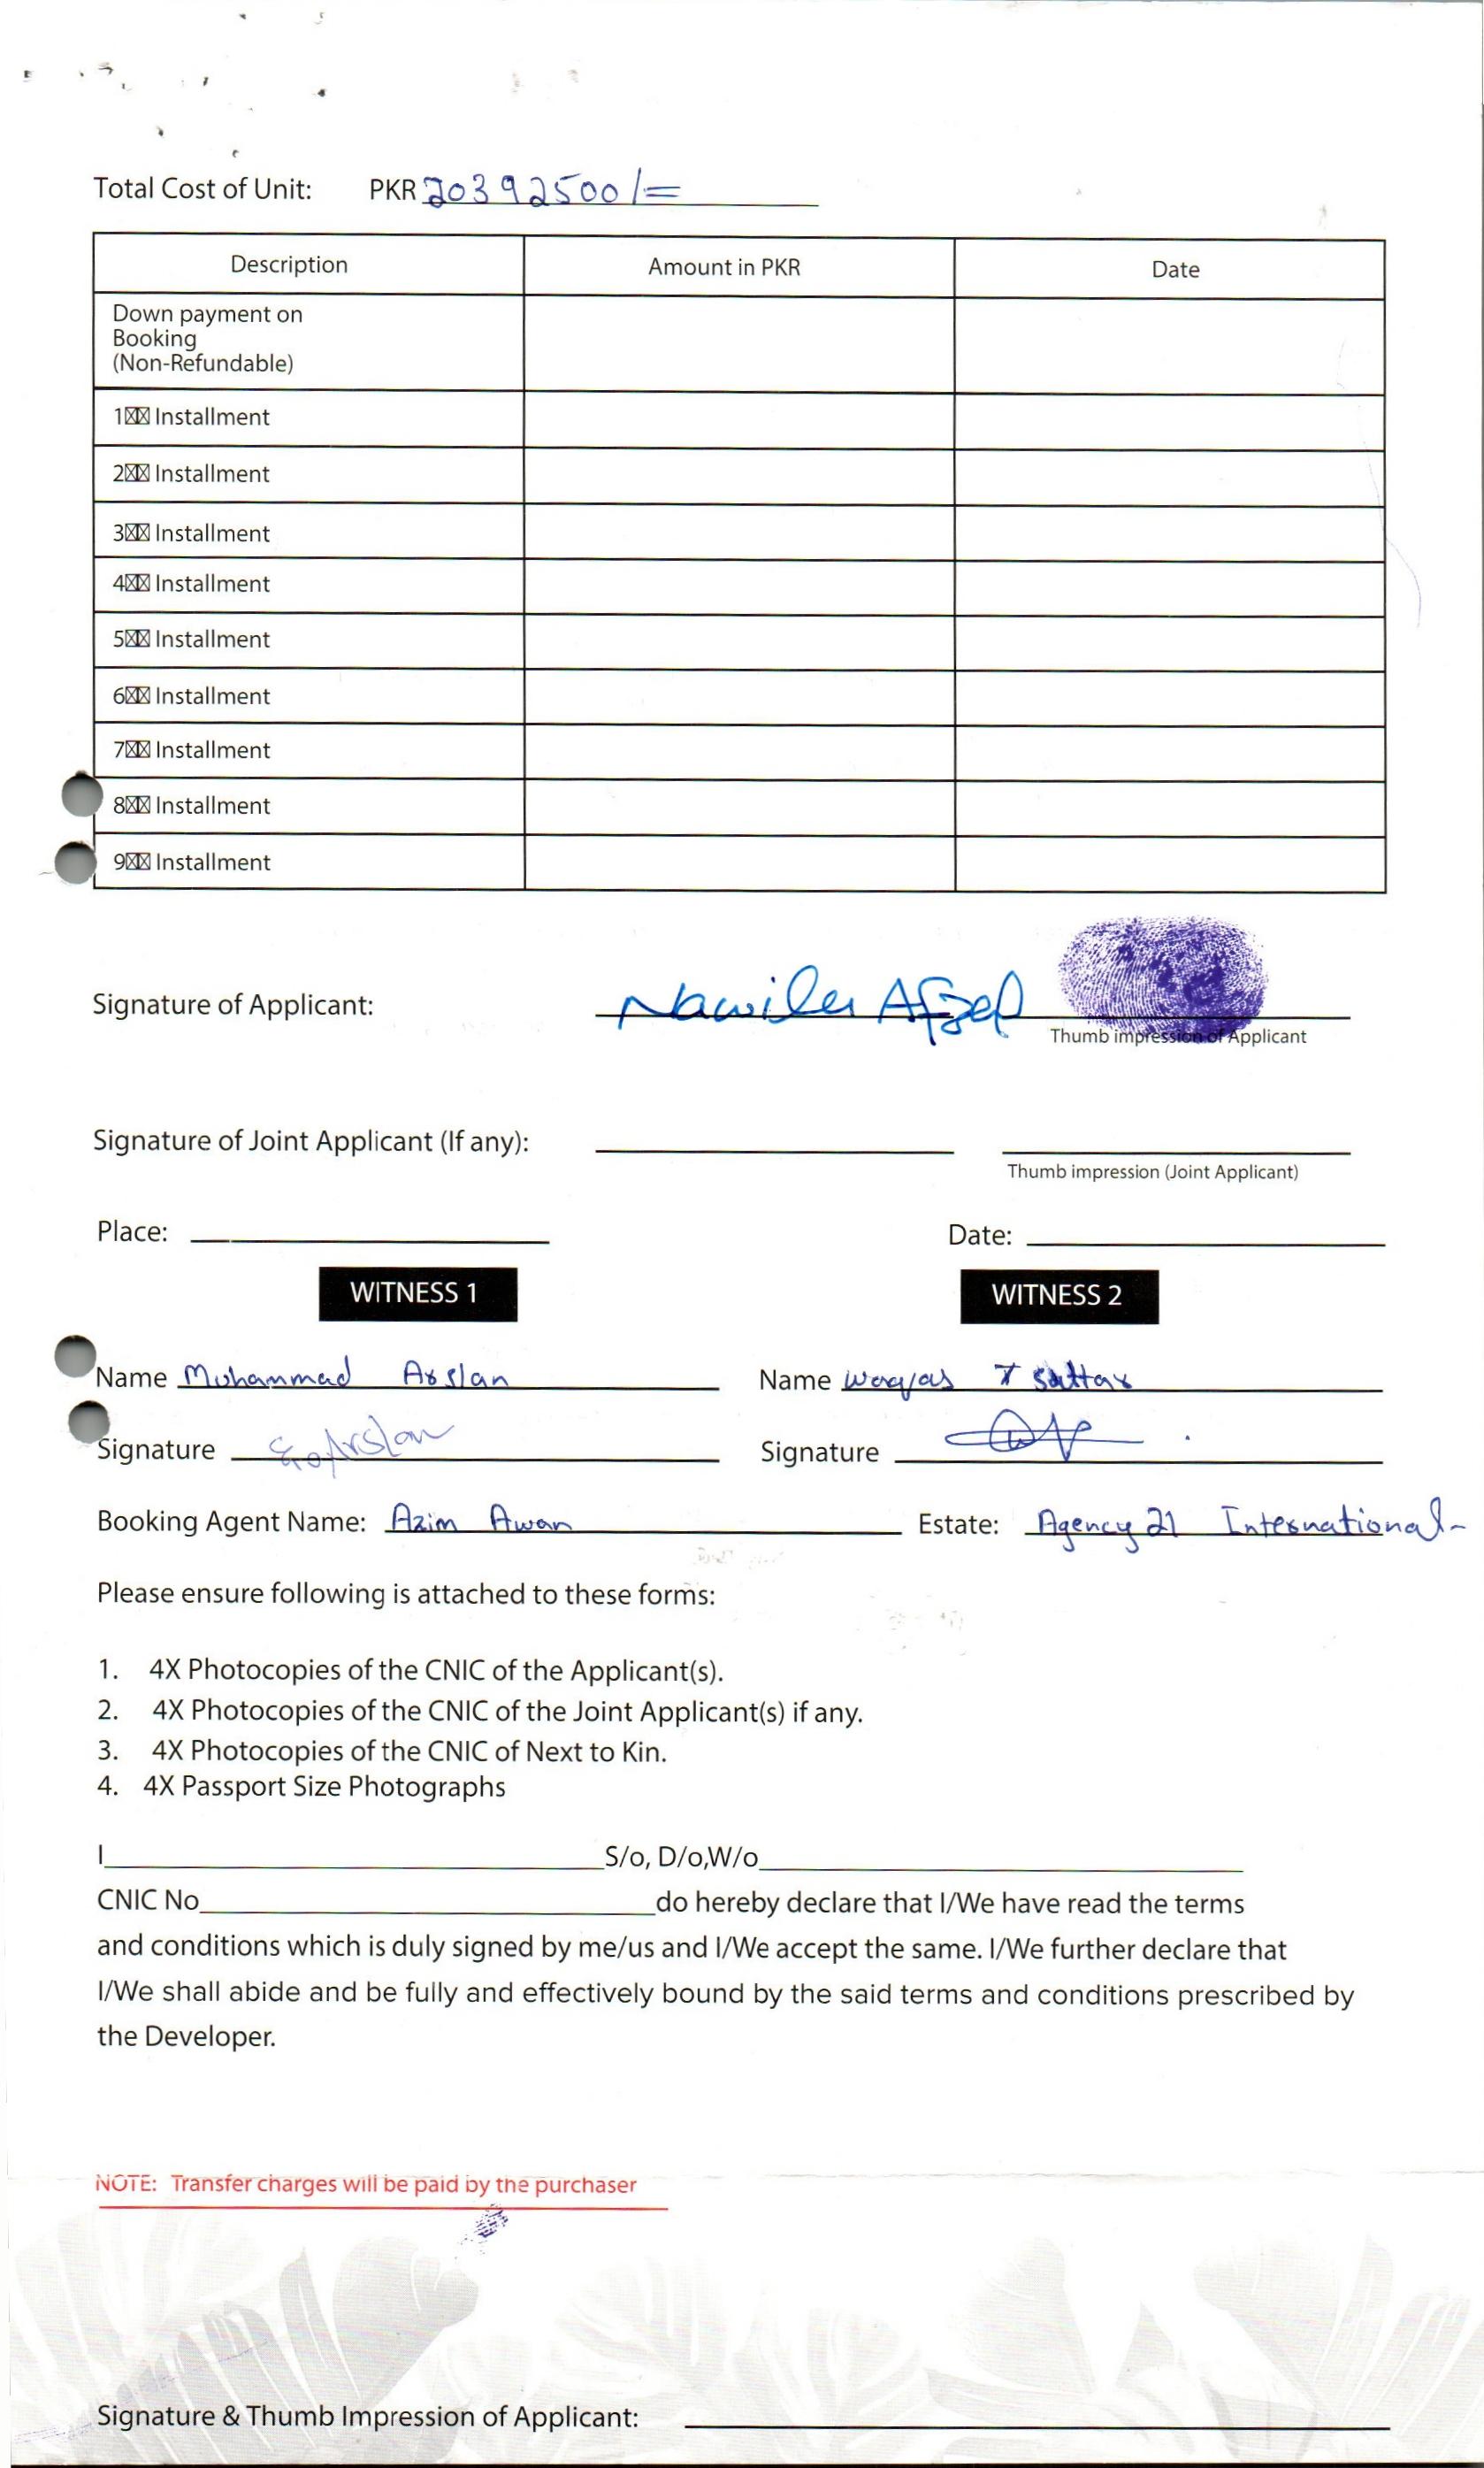 Total Cost of Unit: PKR 20392500/=
Description Amount in PKR Date
Down payment on
Booking
(Non-Refundable)
1☒☒ Installment
2☒☒ Installment
3☒☒ Installment
4☒☒ Installment
5☒☒ Installment
6☒☒ Installment
7☒☒ Installment
8☒☒ Installment
9☒☒ Installment
Signature of Applicant: Afzal
Thumb impression of Applicant
Signature of Joint Applicant (If any):
Thumb impression (Joint Applicant)
Place: Date:
WITNESS 1 WITNESS 2
Name Muhammad Arslan Name Waqas Sattar
Signature Arslan Signature
Booking Agent Name: Azim Awan Estate: Agency 21 International-
Please ensure following is attached to these forms:
1. 4X Photocopies of the CNIC of the Applicant(s).
2. 4X Photocopies of the CNIC of the Joint Applicant(s) if any.
3. 4X Photocopies of the CNIC of Next to Kin.
4. 4X Passport Size Photographs
I S/o, D/o,W/o
CNIC No do hereby declare that I/We have read the terms
and conditions which is duly signed by me/us and I/We accept the same. I/We further declare that
I/We shall abide and be fully and effectively bound by the said terms and conditions prescribed by
the Developer.
NOTE: Transfer charges will be paid by the purchaser
Signature & Thumb Impression of Applicant: